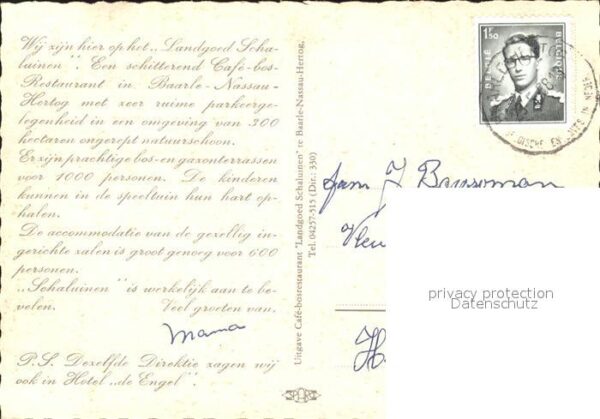 Wij zijn hier op het „Landgoed Scha-
luinen". Een schitterend Café-bos-
Restaurant in Baarle-Nassau-
Hertog met zeer ruime parkeerge-
legenheid in een omgeving van 300
hectaren ongerept natuurschoon.
Er zijn prachtige bos- en gazonterrassen
voor 1000 personen. De kinderen
kunnen in de speeltuin hun hart op-
halen.
De accommodatie van de gezellig in-
gerichte zalen is groot genoeg voor 600
personen.
„Schaluinen" is werkelijk aan te be-
velen. Veel groeten van.
Mama
P.S. Dezelfde Direktie zagen wij
ook in Hotel „de Engel".
Uitgave Café-bosrestaurant "Landgoed Schaluinen" te Baarle-Nassau-Hertog,
Tel. 04257-515 (Dir.: 330)
SPARO
1F50
BELGIE
BELGIQUE
Fam. J
privacy protection
Datenschutz